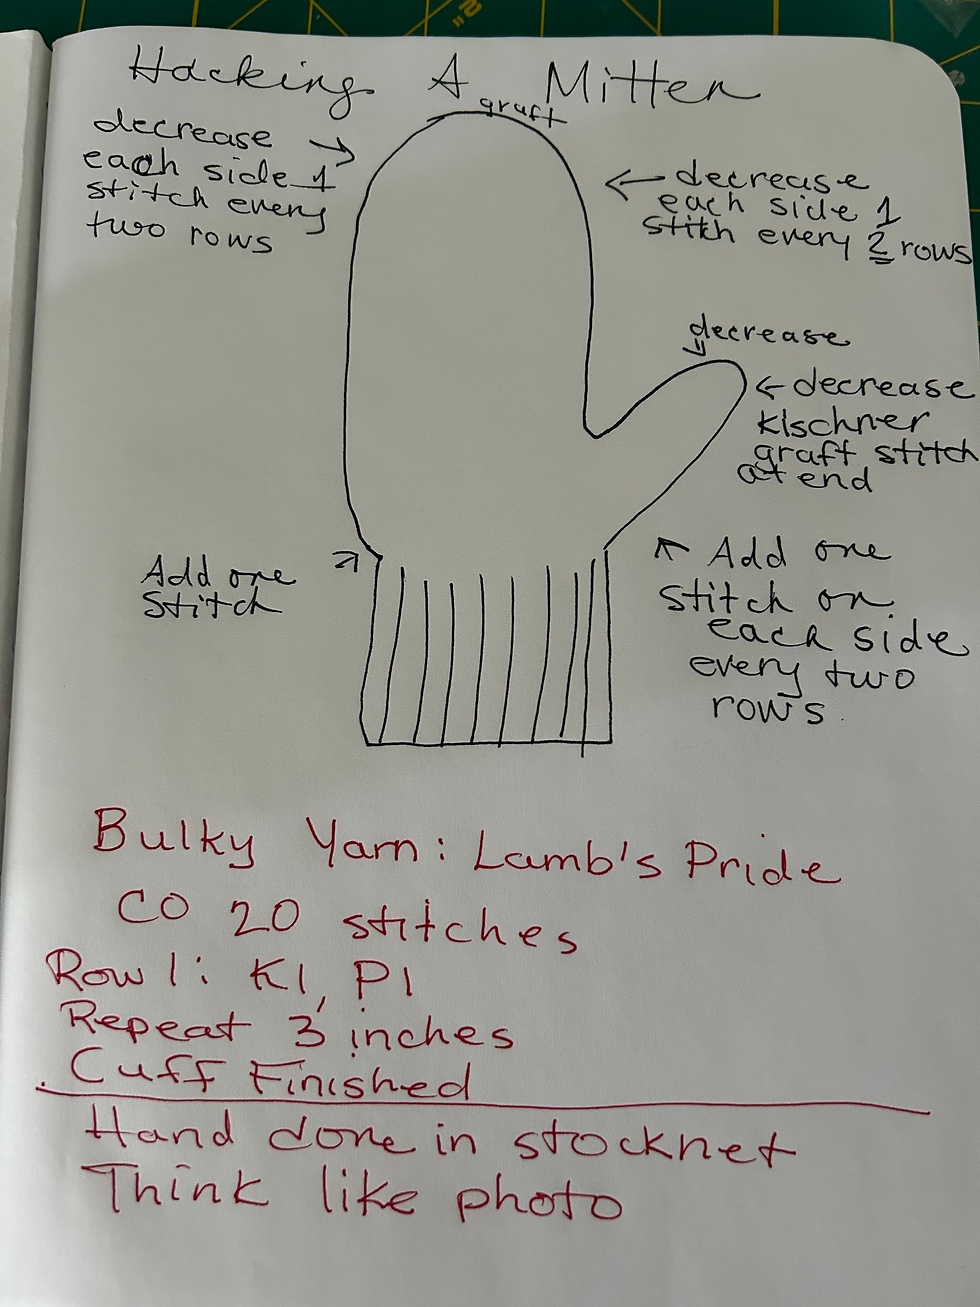 Hacking A Mitten
graft
decrease
each side 1
stitch every
two rows
decrease
each side 1
stith every 2 rows
decrease
decrease
kischner
graft stitch
at end
Add one
stitch
Add one
stitch on
each side
every two
rows.
Bulky Yarn: Lamb's Pride
CO 20 stitches
Row 1: K1, P1
Repeat 3 inches
Cuff Finished
Hand done in stocknet
Think like photo